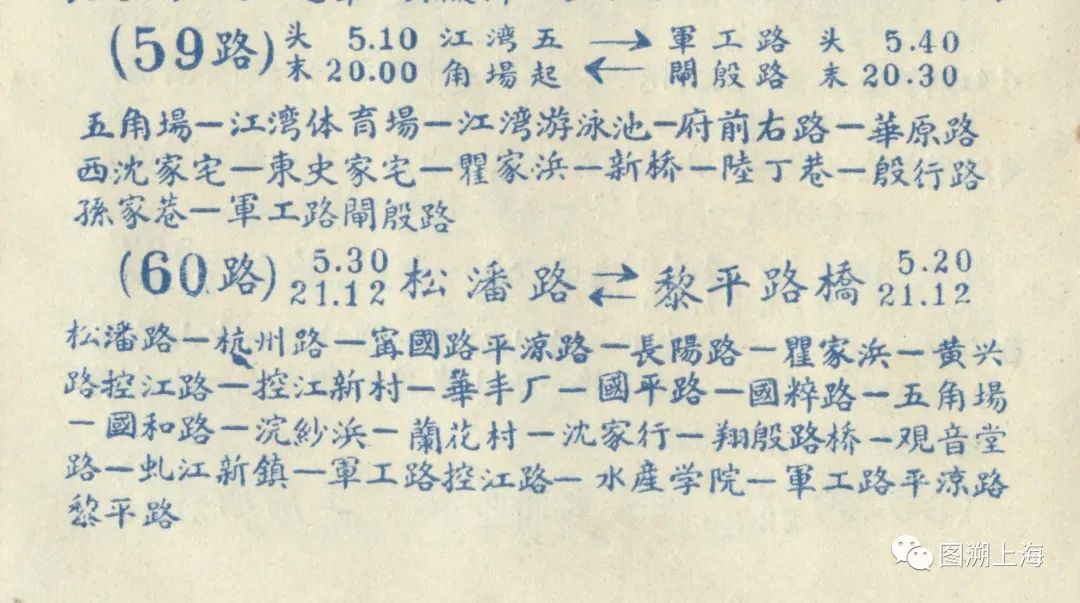 (59路) 头 5.10 江湾五 → 軍工路 头 5.40
末 20.00 角場起 ← 閘殷路 末 20.30
五角場—江湾体育場—江湾游泳池—府前右路—華原路
西沈家宅—東史家宅—瞿家浜—新桥—陸丁巷—殷行路
孫家巷—軍工路閘殷路
(60路) 5.30 松潘路 ⇄ 黎平路橋 5.20
21.12 21.12
松潘路—杭州路—甯國路平凉路—長陽路—瞿家浜—黄兴
路控江路—控江新村—華丰厂—國平路—國粹路—五角場
—國和路—浣紗浜—蘭花村—沈家行—翔殷路桥—观音堂
路—虬江新鎮—軍工路控江路—水産学院—軍工路平凉路
黎平路
图溯上海